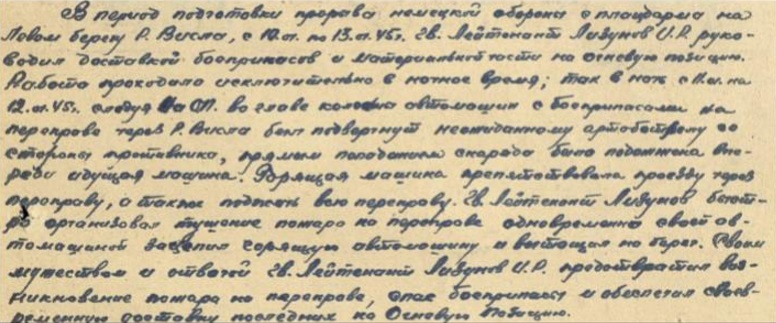 В период подготовки прорыва немецкой обороны с плацдарма на
Левом берегу Р. Висла, с 10.01. по 13.01.45г. Гв. Лейтенант Лизунов И.Р. руко-
водил доставкой боеприпасов и материальной части на огневую позицию.
Работа проходила исключительно в ночное время; так в ночь с 11.01. на
12.01.45г. следуя на ОП. во главе колонны автомашин с боеприпасами на
переправе через Р. Висла был подвергнут неожиданному артобстрелу со
стороны противника, прямым попаданием снаряда была подожжена впе-
реди идущая машина. Горящая машина препятствовала проезду через
переправу, а также поджечь всю переправу. Гв. Лейтенант Лизунов быст-
ро организовал тушение пожара на переправе одновременно своей ав-
томашиной зацепил горящую автомашину и вытащил на берег. Своим
мужеством и отвагой Гв. Лейтенант Лизунов И.Р. предотвратил воз-
никновение пожара на переправе, спас боеприпасы и обеспечил своев-
ременную доставку последних на Огневую Позицию.